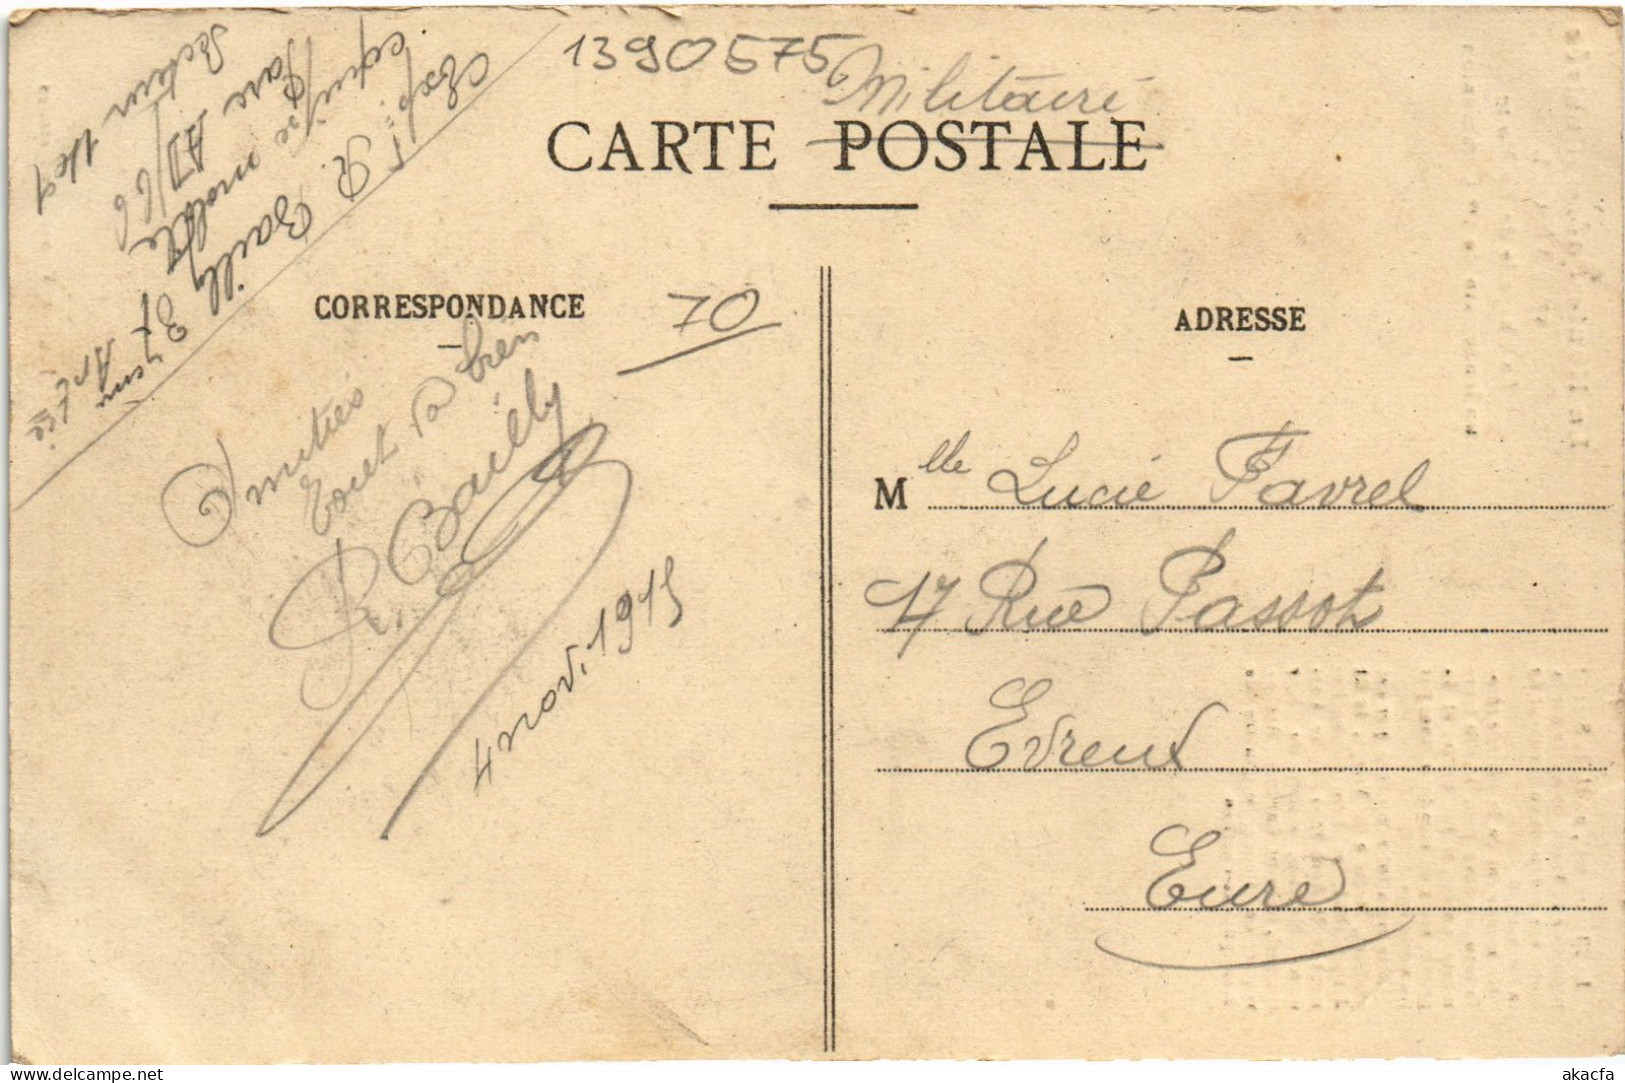 1390575
Militairé
CARTE POSTALE
Expr R. Bailly 37
ème Artrie
équipe mobile
Parc AD/66
Secteur
CORRESPONDANCE
70
Amitiés
tout va bien
R. Bailly
4 nov. 1915
ADRESSE
Mlle Lucie Favrel
17 Rue Passot
Evreux
Eure
akacfa